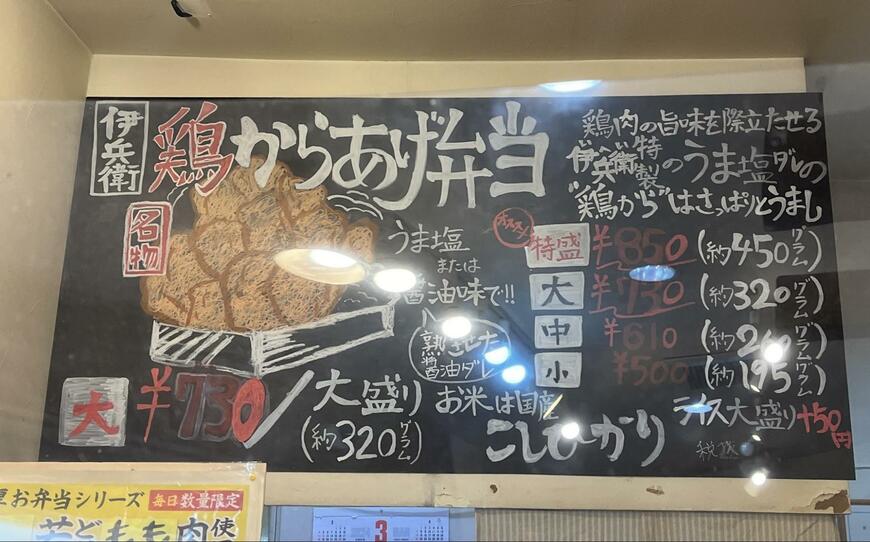 伊兵衛
鶏からあげ弁当
名物
うま塩
または
醤油味で!!
熟させた
醤油ダレ
大 ¥730/大盛り
(約320グラム)
鶏肉の旨味を際立たせる
"伊兵衛"特製のうま塩ダレの
"鶏から"はさっぱりとうまし
オススメ!
特盛 ¥850 (約450グラム)
大 ¥730 (約320グラム)
中 ¥610 (約260グラム)
小 ¥500 (約195グラム)
お米は国産
こしひかり
ライス大盛り+50円
お弁当シリーズ 毎日数量限定
若どもも肉使
3